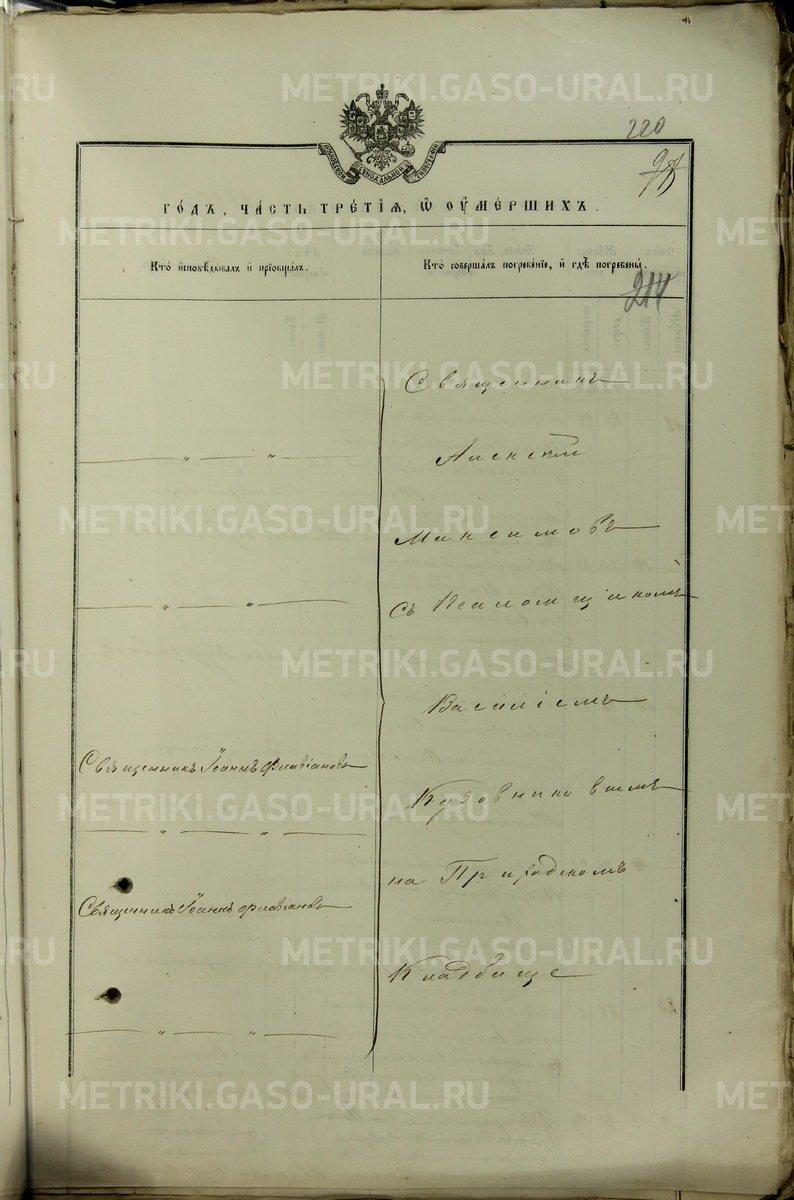 220
МОСКОВСКОЙ СѴНОДАЛЬНОЙ ТѴПОГРАФІИ
ГО́ДЪ, ЧА́СТЬ ТРЕ́ТІѦ, Ѡ ОУ҆МЕ́РШИХЪ.
Кто̀ и҆сповѣ́дывалъ и҆ прїѡбща́лъ.
Кто̀ соверша́лъ погребе́нїе, и҆ гдѣ̀ погребены̀.
214
Священникъ
— " — " —
Максимовъ
— " — " —
съ Псаломщикомъ
Василіемъ
Священникъ Іоаннъ Флавіановъ
Кузовниковымъ
— " — " —
на Приходскомъ
Священникъ Іоаннъ Флавіановъ
Кладбище
— " — " —
METRIKI.GASO-URAL.RU